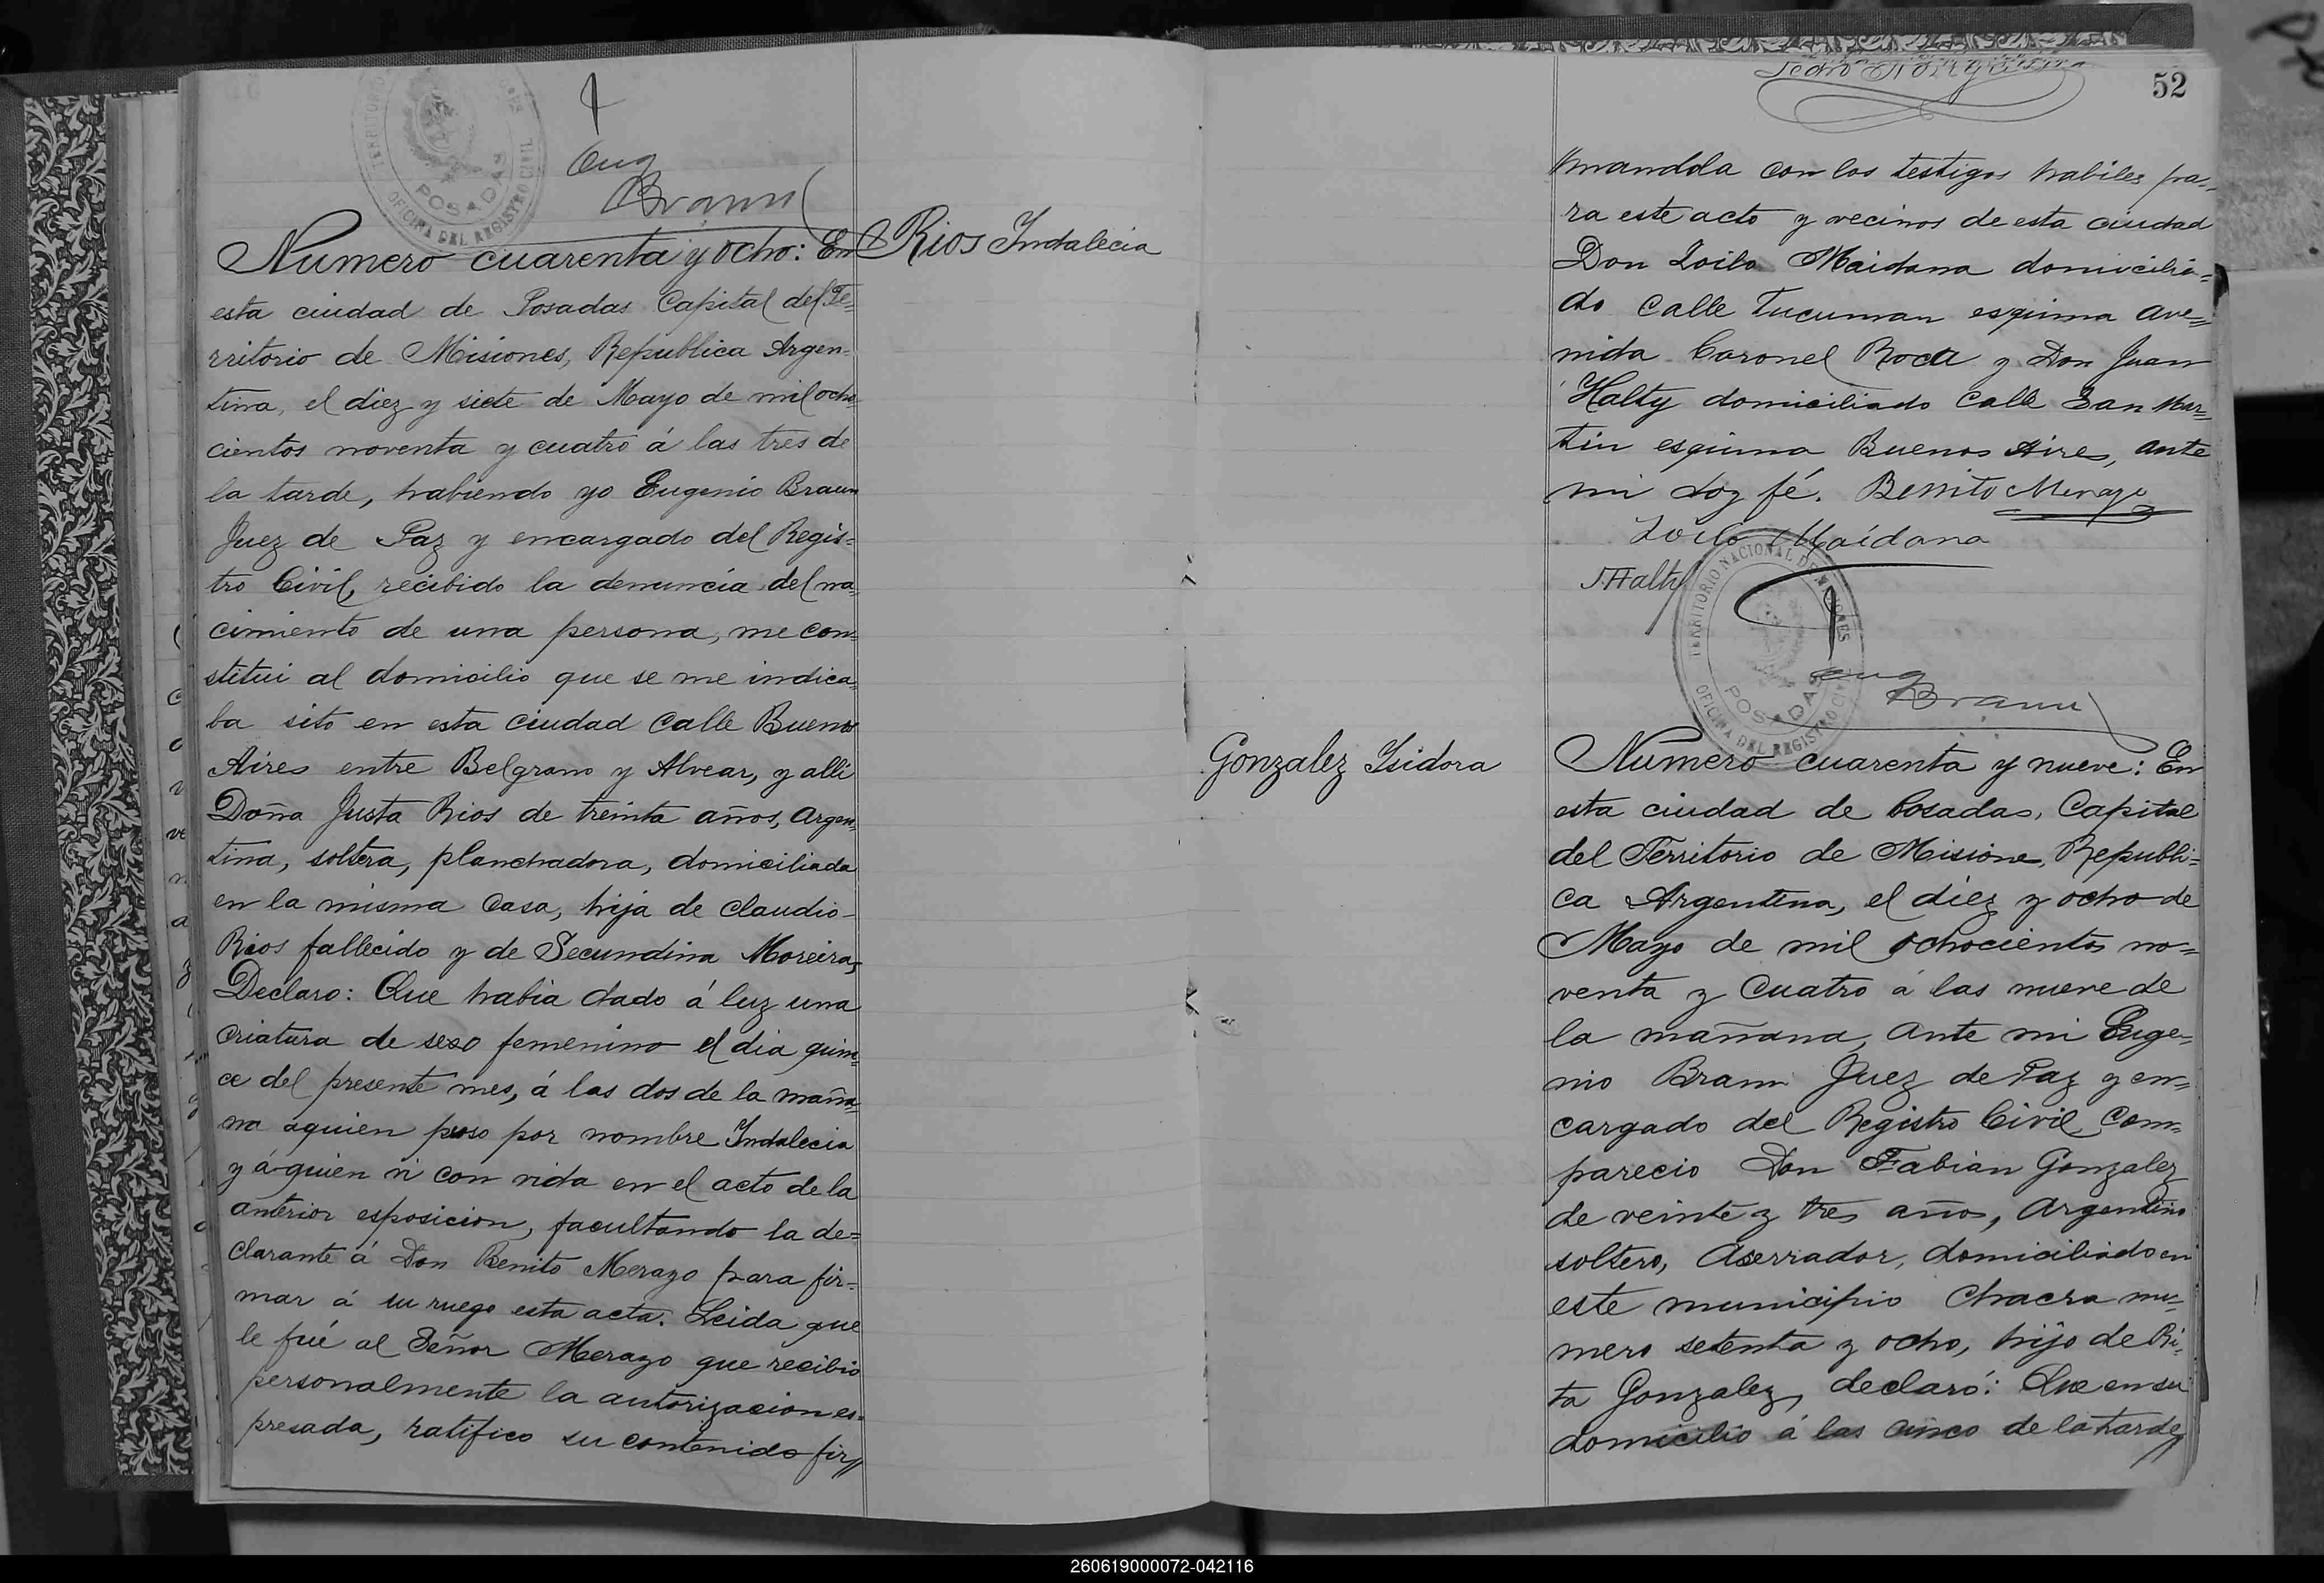 TERRITORIO
POSADAS
OFICINA DEL REGISTRO CIVIL
Eug
Braun
Rios Indalecia
Numero cuarenta y ocho: En
esta ciudad de Posadas Capital del Te-
rritorio de Misiones, Republica Argen-
tina, el diez y siete de Mayo de mil ocho-
cientos noventa y cuatro á las tres de
la tarde, habiendo yo Eugenio Braun
Juez de Paz y encargado del Regis-
tro Civil, recibido la denuncia del na-
cimiento de una persona, me con-
stitui al domicilio que se me indica-
ba sito en esta ciudad Calle Buenos
Aires entre Belgrano y Alvear, y alli
Doña Justa Rios de treinta años, Argen-
tina, soltera, planchadora, domiciliada
en la misma Casa, hija de Claudio
Rios fallecido y de Secundina Moreira,
Declaro: Que habia dado á luz una
criatura de sexo femenino el dia quin-
ce del presente mes, á las dos de la maña-
na aquien puso por nombre Indalecia
y á quien vi con vida en el acto de la
anterior esposicion, facultando la de-
clarante á Don Benito Merazo para fir-
mar á su ruego esta acta. Leida que
le fué al Señor Merazo que recibió
personalmente la autorizacion es-
presada, ratifico su contenido fir//
52
mandola con los testigos habiles pa-
ra este acto y vecinos de esta ciudad
Don Zoilo Maidana domicilia-
do Calle Tucuman esquina Ave-
nida Coronel Roca y Don Juan
Halty domiciliado Calle San Mar-
tin esquina Buenos Aires, ante
mi doy fé. Benito Merazo
Zoilo Maidana
J Halty
TERRITORIO NACIONAL DE MISIONES
POSADAS
OFICINA DEL REGISTRO CIVIL
Eug
Braun
Gonzalez Isidora
Numero cuarenta y nueve: En
esta ciudad de Posadas, Capital
del Territorio de Misiones, Republi-
ca Argentina, el diez y ocho de
Mayo de mil ochocientos no-
venta y Cuatro á las nueve de
la mañana, ante mi Euge-
nio Braun Juez de Paz y en-
cargado del Registro Civil Com-
parecio Don Fabian Gonzalez
de veinte y tres años, Argentino
soltero, Aserrador, domiciliado en
este municipio Chacra nu-
mero setenta y ocho, hijo de Ri-
ta Gonzalez, declaró: Que en su
domicilio á las cinco de la tarde//
260619000072-042116